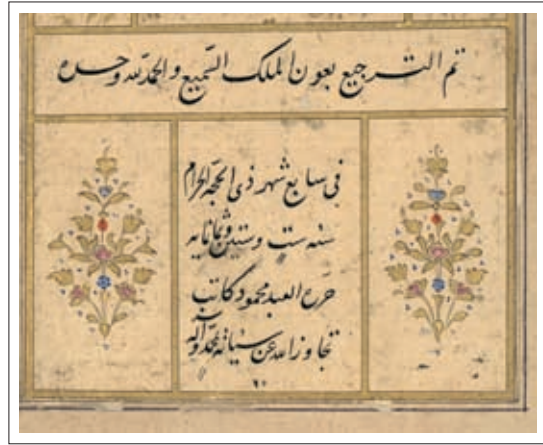 تم الترجیع بعون الملک السمیع والحمد لله وحده
فی سابع شهر ذی الحجه الحرام
سنه ست وستین وثمانمایه
حرره العبد محمود کاتب
تجاوز الله عن سیئاته بمحمد وآله